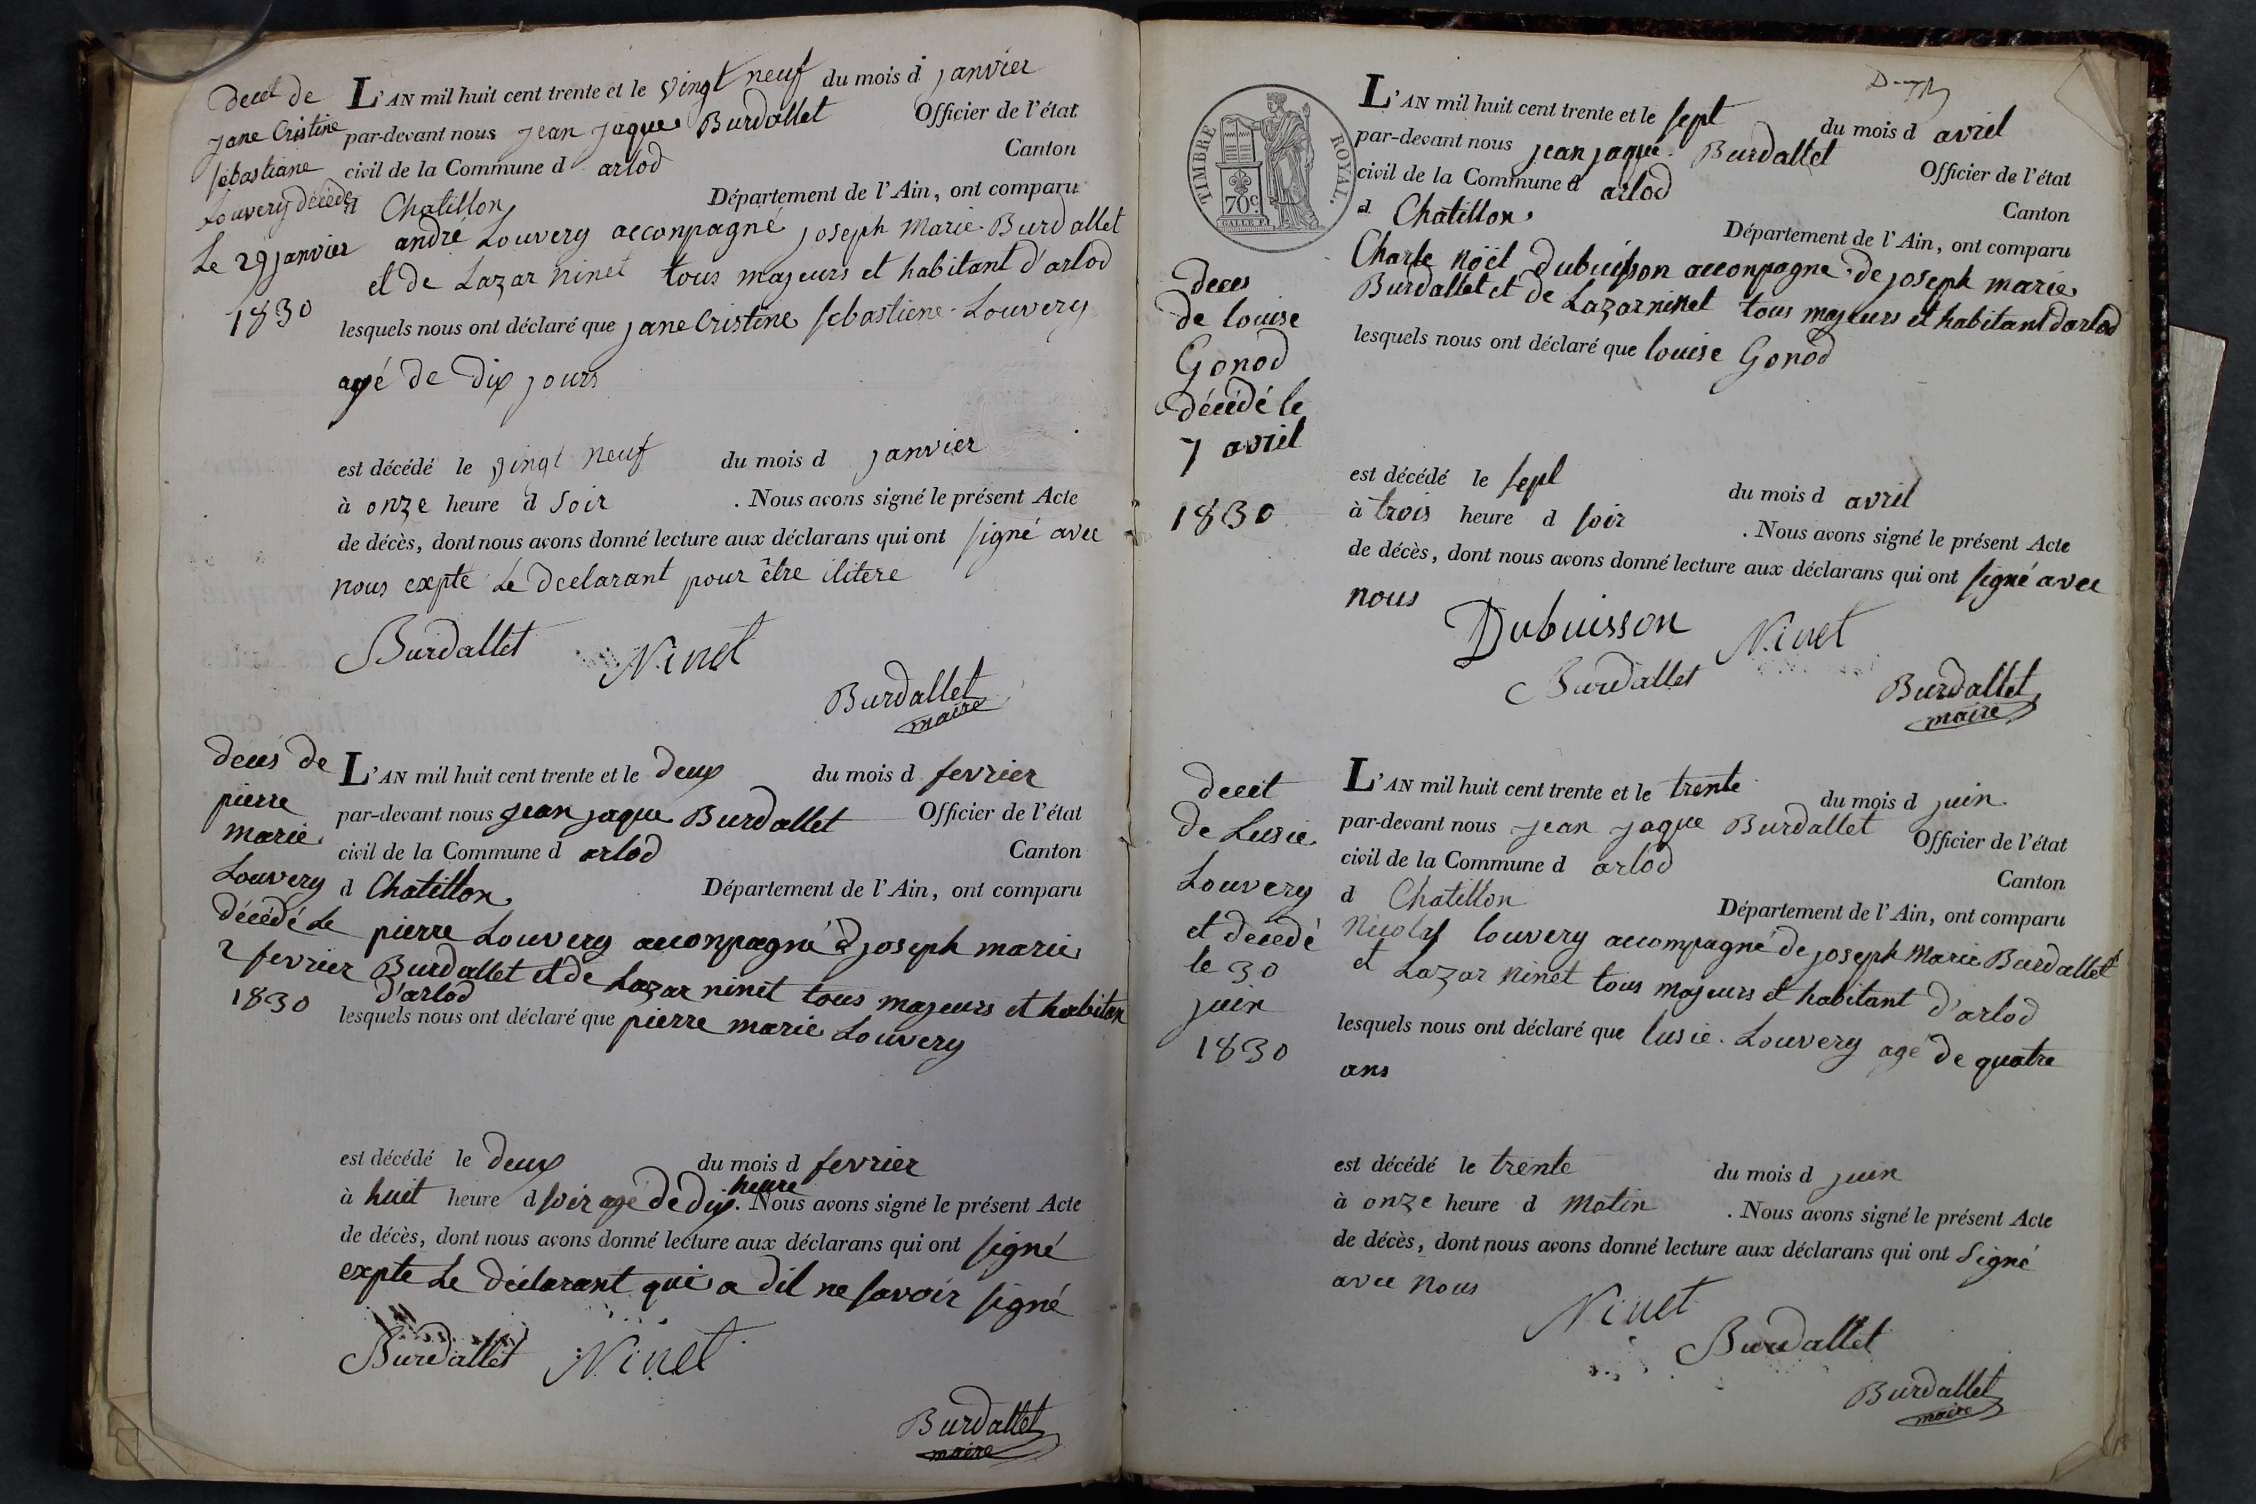 decet de
jane Cristine
sebastiane
Louvery décédé
Le 29 janvier
1830
L'AN mil huit cent trente et le vingt neuf du mois d janvier
par-devant nous jean jaque Burdallet Officier de l'état
civil de la Commune d arlod Canton
d Chatillon Département de l'Ain, ont comparu
andré Louvery acconpagné joseph Marie Burdallet
et de Lazar Ninet tous majeurs et habitant d'arlod
lesquels nous ont déclaré que jane Cristine sebastiene Louvery
agé de dix jours
est décédé le vingt neuf du mois d janvier
à onze heure d soir . Nous avons signé le présent Acte
de décès, dont nous avons donné lecture aux déclarans qui ont signé avec
nous expte Le declarant pour être ilitere
Burdallet Ninet
Burdallet
maire
decés de
pierre
marie
Louvery
décédé Le
2 fevrier
1830
L'AN mil huit cent trente et le deux du mois d fevrier
par-devant nous jean jaque Burdallet Officier de l'état
civil de la Commune d arlod Canton
d Chatillon Département de l'Ain, ont comparu
pierre Louvery acconpagné d joseph marie
Burdallet et de Lazar ninet tous majeurs et habitan
d'arlod
lesquels nous ont déclaré que pierre marie Louvery
est décédé le deux du mois d fevrier
heure
à huit heure d soir agé de dix . Nous avons signé le présent Acte
de décès, dont nous avons donné lecture aux déclarans qui ont signé
expte Le déclarant qui a dit ne savoir signé
Burdallet Ninet
Burdallet
maire
TIMBRE ROYAL.
70c.
deces
de louise
Gonod
décédé le
7 avril
1830
L'AN mil huit cent trente et le sept du mois d avril
par-devant nous jean jaque Burdallet Officier de l'état
civil de la Commune d arlod Canton
d Chatillon Département de l'Ain, ont comparu
Charle Noël Dubuisson acconpagne de joseph marie
Burdallet et de Lazar ninet tous majeurs et habitant d'arlod
lesquels nous ont déclaré que louise Gonod
est décédé le sept du mois d avril
à trois heure d soir . Nous avons signé le présent Acte
de décès, dont nous avons donné lecture aux déclarans qui ont signé avec
nous
Dubuisson Ninet
Burdallet
Burdallet
maire
decet
de Lusie
Louvery
et decedé
le 30
juin
1830
L'AN mil huit cent trente et le trente du mois d juin
par-devant nous jean jaque Burdallet Officier de l'état
civil de la Commune d arlod Canton
d Chatillon Département de l'Ain, ont comparu
Nicolas louvery accompagné de joseph Marie Burdallet
et Lazar Ninet tous majeurs et habitant d'arlod
lesquels nous ont déclaré que lusie Louvery agé de quatre
ans
est décédé le trente du mois d juin
à onze heure d Matin . Nous avons signé le présent Acte
de décès, dont nous avons donné lecture aux déclarans qui ont Signé
avec nous
Ninet
Burdallet
Burdallet
maire